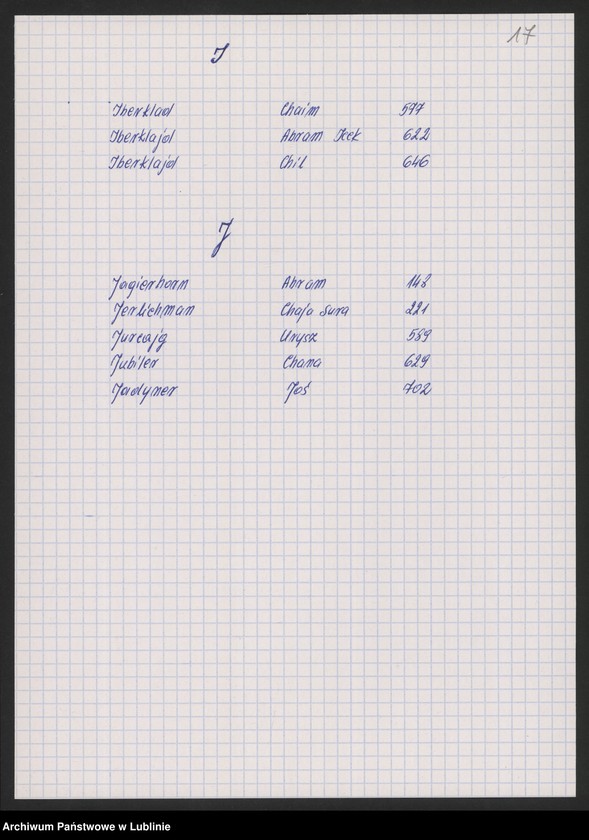 17
I
Iberklad Chaim 577
Iberklajd Abram Icek 622
Iberklajd Chil 646
J
Jagierhorn Abram 148
Jerlichman Chaja Sura 221
Jurcajg Urysz 589
Jubiler Chana 629
Jadyner Joś 702
Archiwum Państwowe w Lublinie